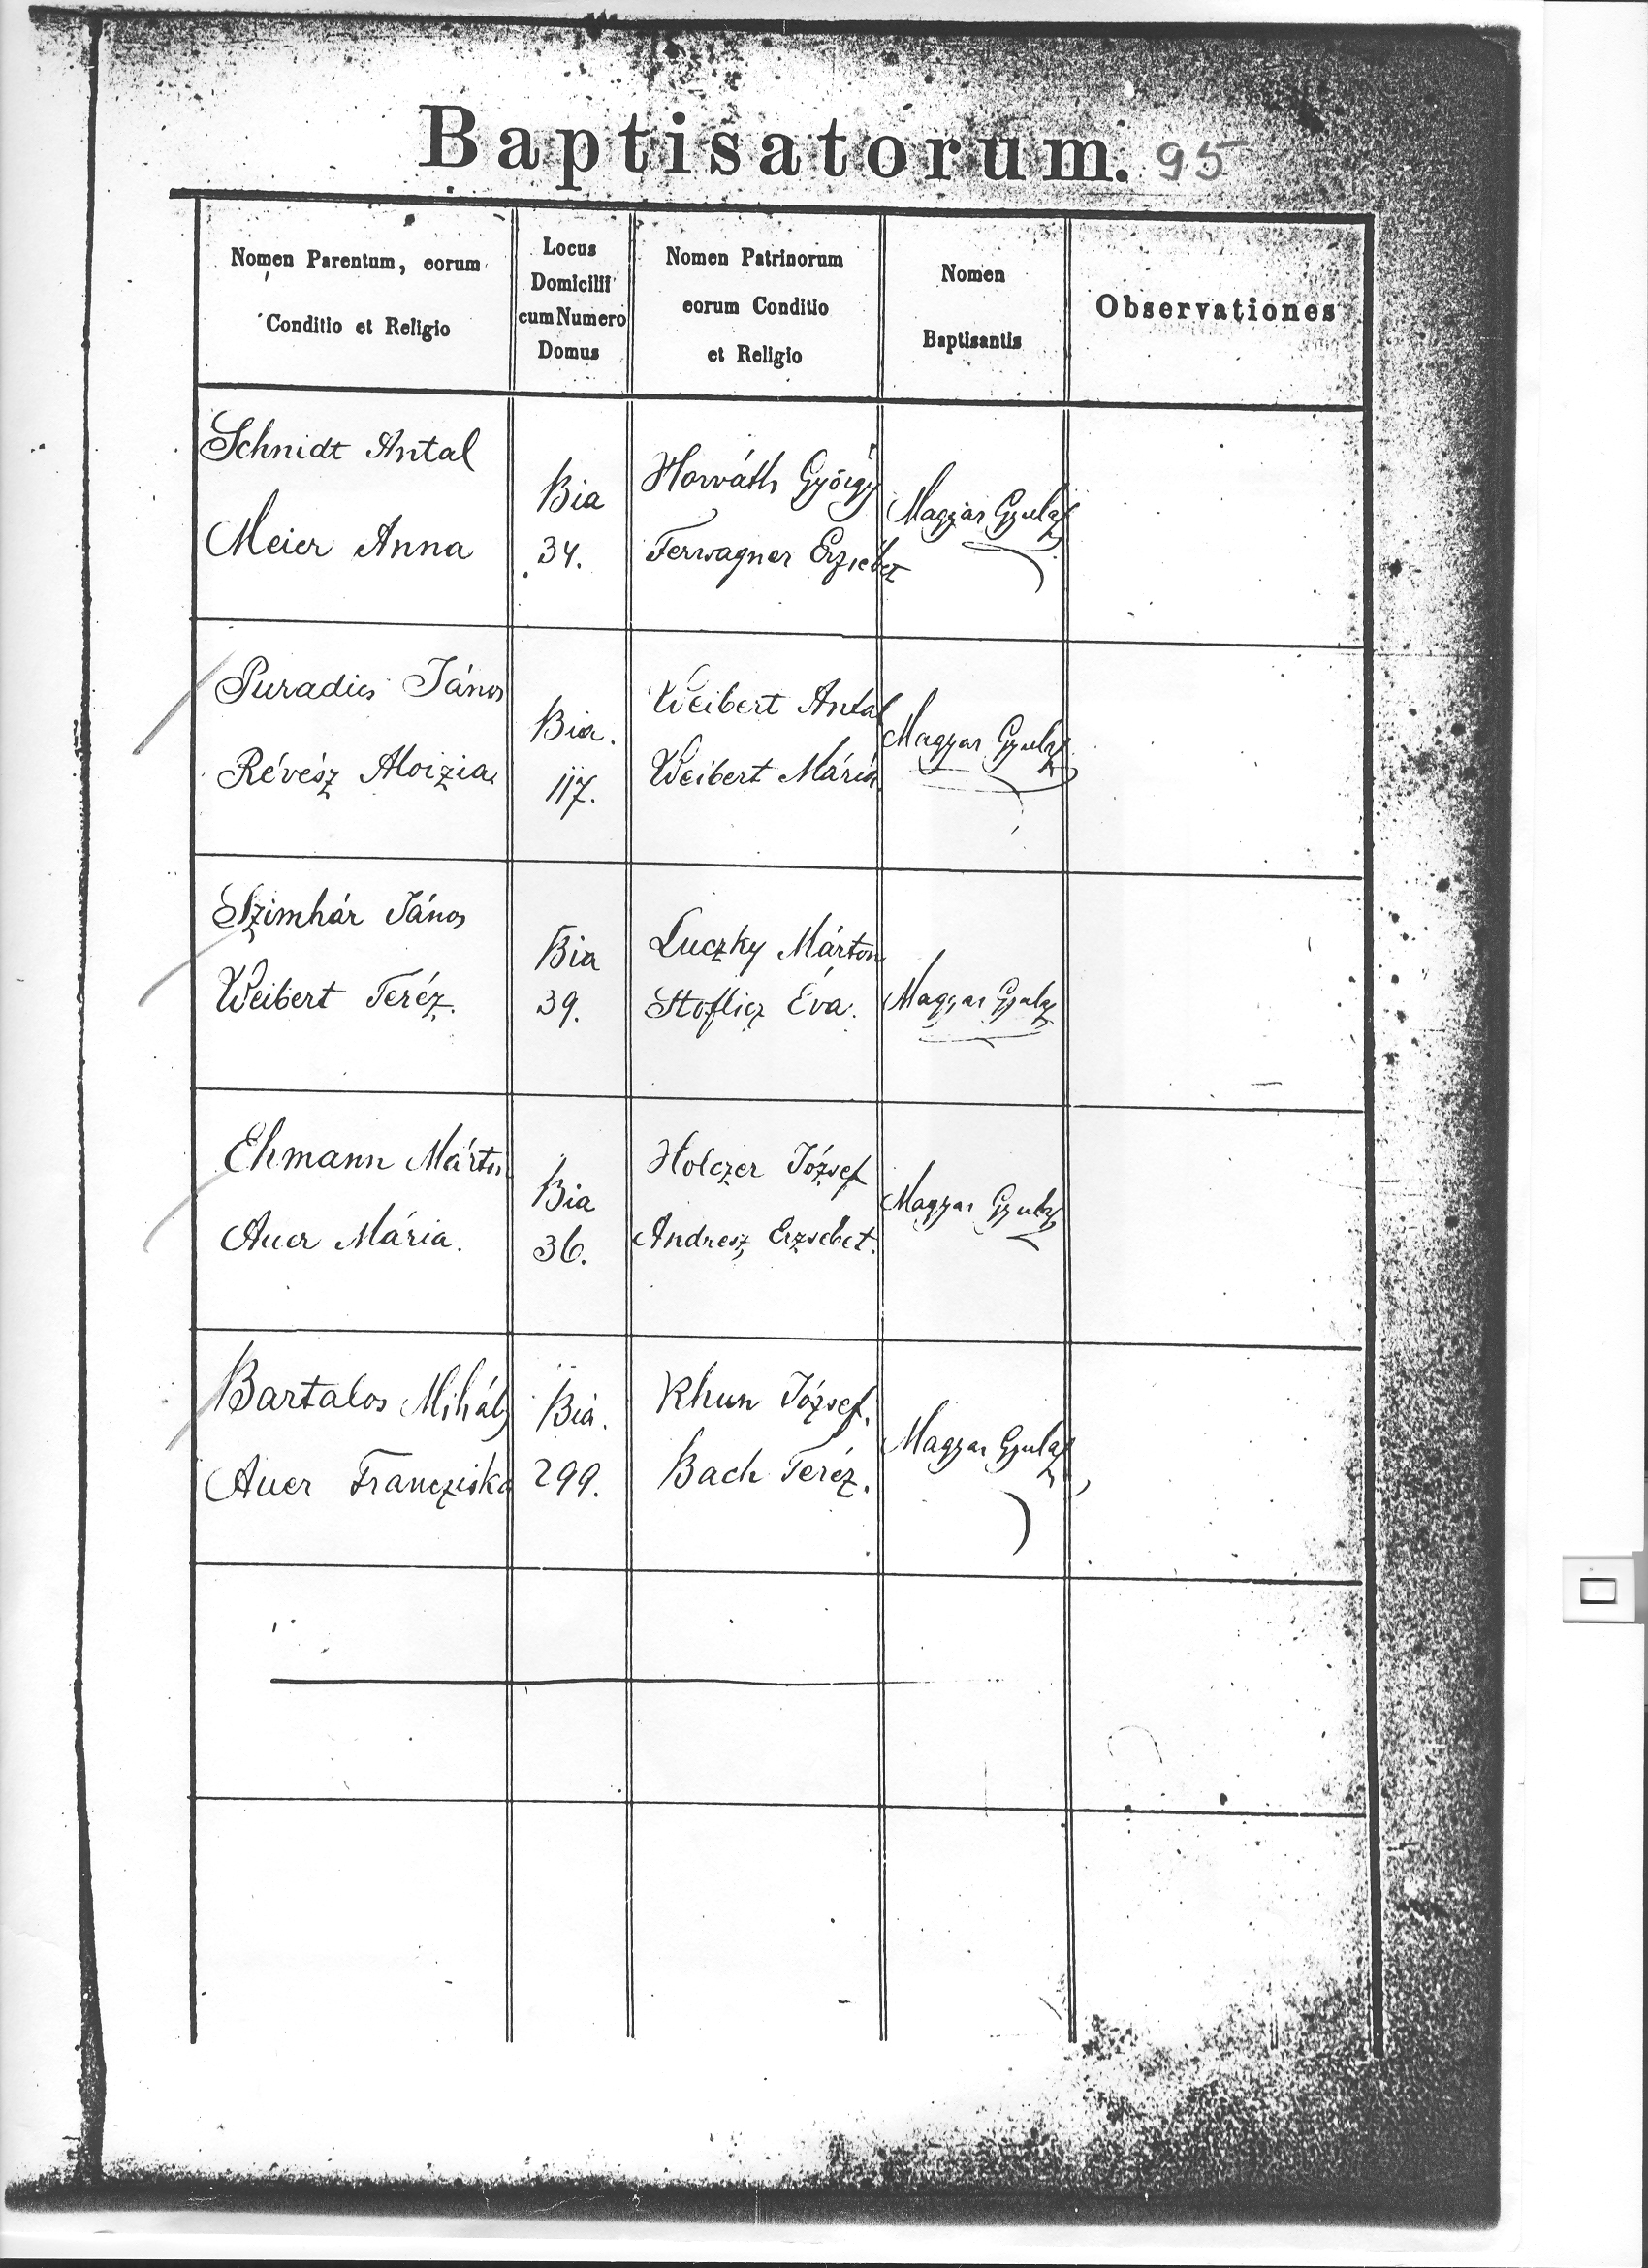 Baptisatorum. 95
Nomen Parentum, eorum
Conditio et Religio
Locus
Domicilii
cum Numero
Domus
Nomen Patrinorum
eorum Conditio
et Religio
Nomen
Baptisantis
Observationes
Schnidt Antal
Meier Anna
Bia
34.
Horváth György
Ferwagner Erzsébet
Magyar Gyula
Puradics János
Révész Aloizia
Bia.
117.
Weibert Antal
Weibert Mária
Magyar Gyula
Szimhár János
Weibert Teréz.
Bia
39.
Luczky Márton
Stoflicz Éva.
Magyar Gyula
Ehmann Márton
Auer Mária.
Bia
36.
Holczer József
Andresz Erzsébet.
Magyar Gyula
Bartalos Mihály
Auer Francziska
Bia.
299.
Khun József.
Bach Teréz.
Magyar Gyula